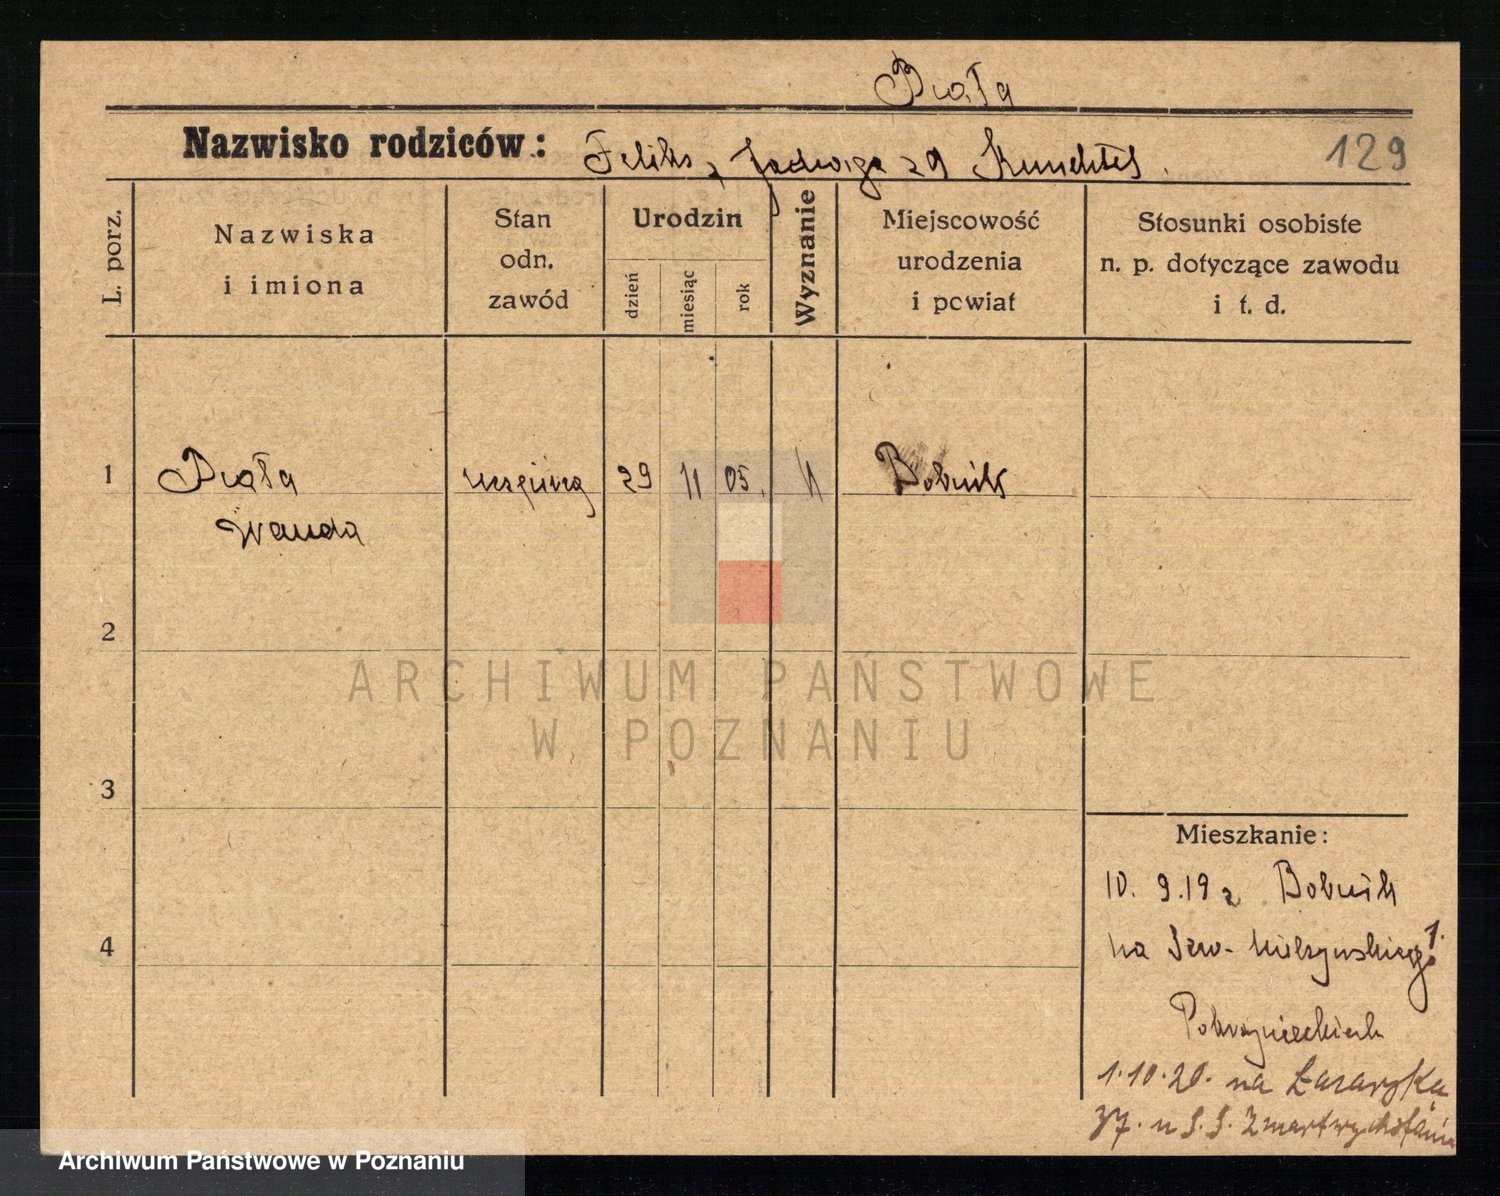 Biała
Nazwisko rodziców: Feliks, Jadwiga zd
129
L. porz.
Nazwiska
i imiona
Stan
odn.
zawód
Urodzin
dzień
miesiąc
rok
Wyznanie
Miejscowość
urodzenia
i powiat
Stosunki osobiste
n. p. dotyczące zawodu
i t. d.
1 Biała 29 11 05. Bobnik
Wanda
2
3
4
Mieszkanie:
10. 9.19 z Bobnik
na Sew. Mielżyńskiego 1.
1.10.20. na Łazarską
37. u S. S. Zmartwychstania
ARCHIWUM PAŃSTWOWE
W POZNANIU
Archiwum Państwowe w Poznaniu